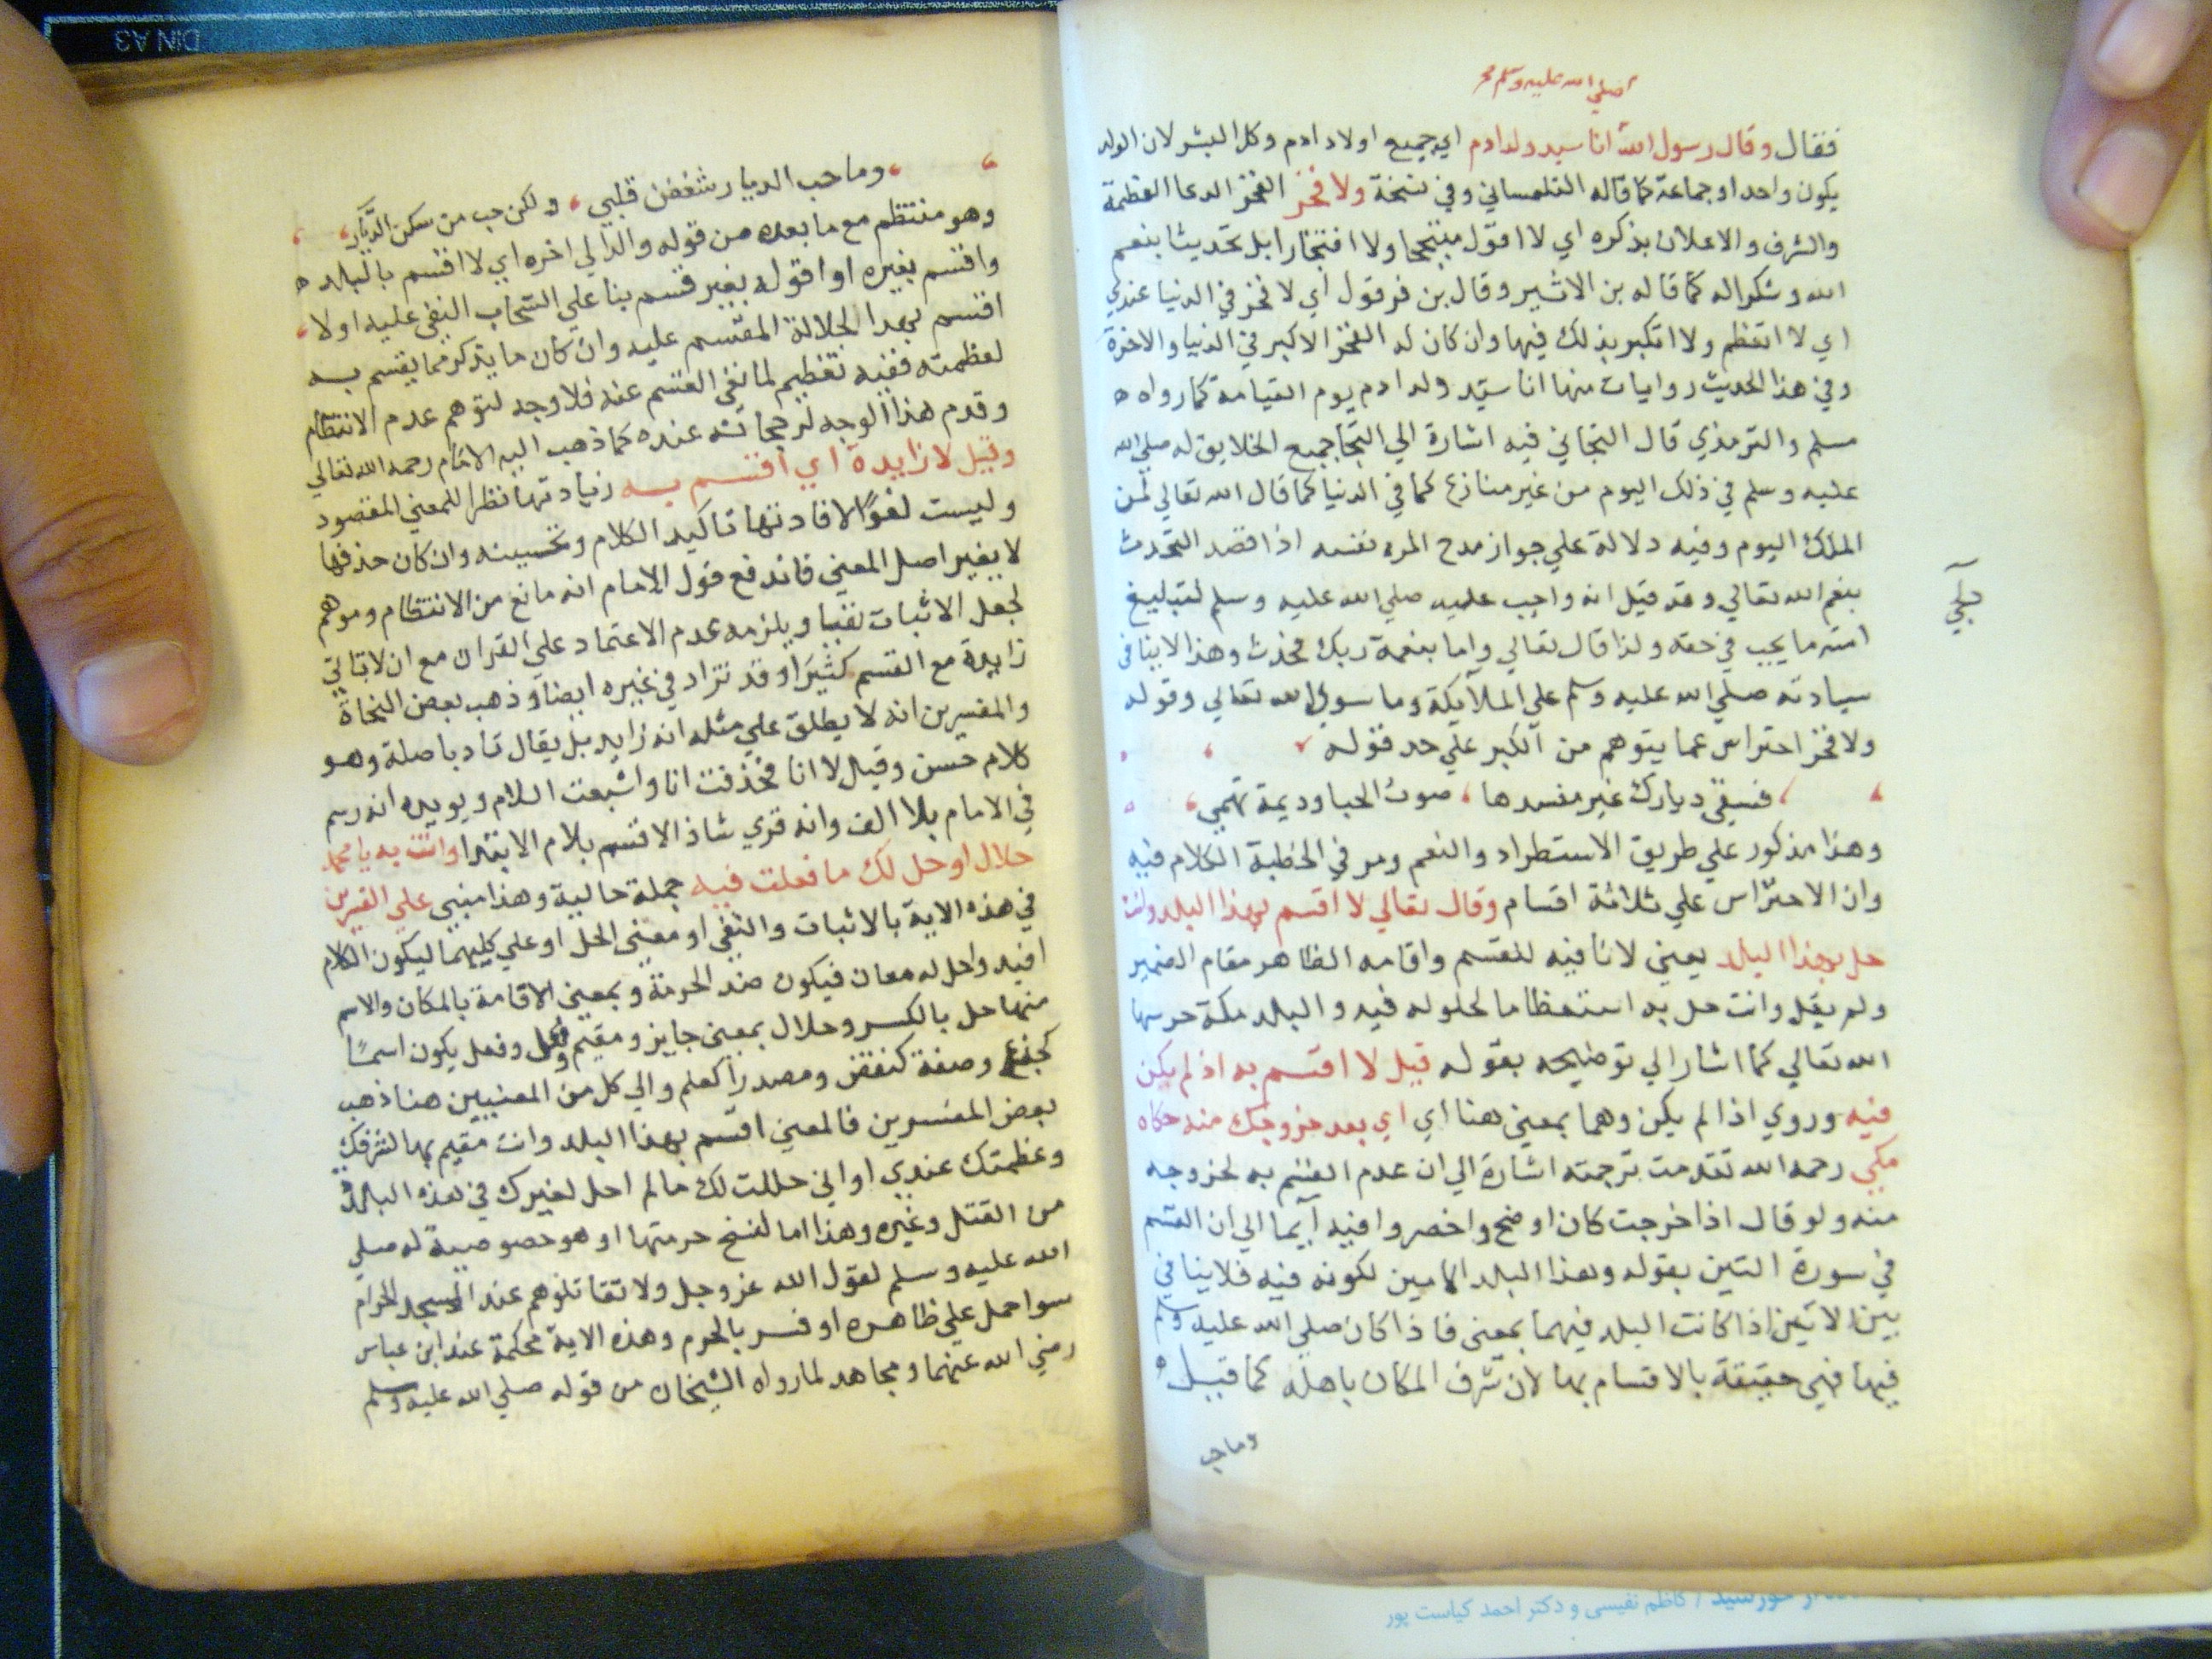 صلي الله عليه وسلم
فقال وقال رسول الله انا سيد ولد ادم اي جميع اولاد ادم وكل البشر لان الولد
يكون واحدا وجماعة كما قاله التلمساني وفي نسخة ولا فخر الفخر ادعا العظمة
والشرف والاعلان بذكره اي لا اقول متبجحا ولا افتخارا بل تحديثا بنعم
الله وشكرا له كما قاله بن الاثير وقال بن فرقول اي لا فخر في الدنيا عندي
اي لا اتعظم ولا اتكبر بذلك فيها وان كان له الفخر الاكبر في الدنيا والاخرة
وفي هذا الحديث روايات منها انا سيد ولد ادم يوم القيامة كما رواه
مسلم والترمذي قال التجاني فيه اشارة الي التجا جميع الخلايق له صلي الله
عليه وسلم في ذلك اليوم من غير منازع كما في الدنيا كما قال الله تعالي لمن
الملك اليوم وفيه دلالة علي جواز مدح المرء نفسه اذا قصد التحدث
بنعم الله تعالي وقد قيل انه واجب عليه صلي الله عليه وسلم لتبليغ
امته ما يجب في حقه ولذا قال تعالي واما بنعمة ربك فحدث وهذا لا ينافي
سيادته صلي الله عليه وسلم علي الملآيكة وما سوي الله تعالي وقوله
ولا فخر احتراس عما يتوهم من الكبر علي حد قوله
فسقي ديارك غير مفسدها ، صوب الحيا وديمة تهمي
وهذا مذكور علي طريق الاستطراد والنعم ومر في الخطبة الكلام فيه
وان الاحتراس علي ثلاثة اقسام وقال تعالي لا اقسم بهذا البلد وانت
حل بهذا البلد يعني لانا فيه للقسم واقامه الظاهر مقام الضمير
ولم يقل وانت حل به استعظاما لحلوله فيه والبلد مكة حرسها
الله تعالي كما اشار الي توضيحه بقوله قيل لا اقسم به اذ لم يكن
فيه وروي اذا لم يكن وهما بمعني هنا اي اي بعد خروجك منه حكاه
مكي رحمه الله تقدمت ترجمته اشارة الي ان عدم القسم به لخروجه
منه ولو قال اذا خرجت كان اوضح واخصر وافيه آيما الي ان القسم
في سورة التين بقوله وهذا البلد الامين لكونه فيه فلا ينافي
بين الايتين اذا كانت البلد فيهما بمعني فاذا كان صلي الله عليه وسلم
فيها فهي حقيقة بالاقسام بها لان شرف المكان باهله كما قيل
وما حب
وما حب الديار شغفن قلبي ، ولكن حب من سكن الديار
وهو منتظم مع ما بعده من قوله ووالد الي اخره اي لا اقسم بالبلد
واقسم بغيره او اقوله بغير قسم بنا علي انسحاب النفي عليه اولا
اقسم بهذا لجلالة المقسم عليه وان كان ما يتذكر مما يقسم به
لعظمته ففيه تعظيم لما نفي القسم عنه فلا وجه لتوهم عدم الانتظام
وقدم هذا الوجه لرجحانه عنده كما ذهب اليه الامام رحمه الله تعالي
وقيل لا زايدة اي اقسم به زيادتها نظرا للمعني المقصود
وليست لغوا لافادتها تاكيد الكلام وتحسينه وان كان حذفها
لا يغير اصل المعني فاندفع قول الامام انه مانع من الانتظام وموهم
لجعل الاثبات نفيا ويلزمه عدم الاعتماد علي القران مع ان لا تاتي
زايدة مع القسم كثيرا وقد تزاد في غيره ايضا وذهب بعض النحاة
والمفسرين انه لا يطلق علي مثله انه زايد بل يقال تادبا صلة وهو
كلام حسن وقيل لا انا فحذفت انا واشبعت اللام ويويده انه رسم
في الامام بلا الف وانه قري شاذا لاقسم بلام الابتدا وانت به يا محمد
حلال او حل لك ما فعلت فيه جملة حالية وهذا مبني علي التفسيرين
في هذه الاية بالاثبات والنفي او معني الحل او علي كليهما ليكون الكلام
افيد واحل له معان فيكون ضد الحرمة وبمعني الاقامة بالمكان والاسم
منها حل بالكسر وحلال بمعني جايز ومقيم وفعل يكون اسمًا
كجذع وصفة كنقض ومصدرا كعلم والي كل من المعنيين هنا ذهب
بعض المفسرين فالمعني اقسم بهذا البلد وانت مقيم بها لشرفك
وعظمتك عندي او اني حللت لك ما لم احل لغيرك في هذه البلد
من القتل وغيره وهذا اما لنسخ حرمتها او هو خصوصية له صلي
الله عليه وسلم لقول الله عز وجل ولا تقاتلوهم عند المسجد الحرام
سوا حمل علي ظاهره او فسر بالحرم وهذه الاية محكمة عند ابن عباس
رضي الله عنهما ومجاهد لما رواه الشيخان من قوله صلي الله عليه وسلم
DIN A3
كاظم نفيسى و دكتر احمد كياست پور